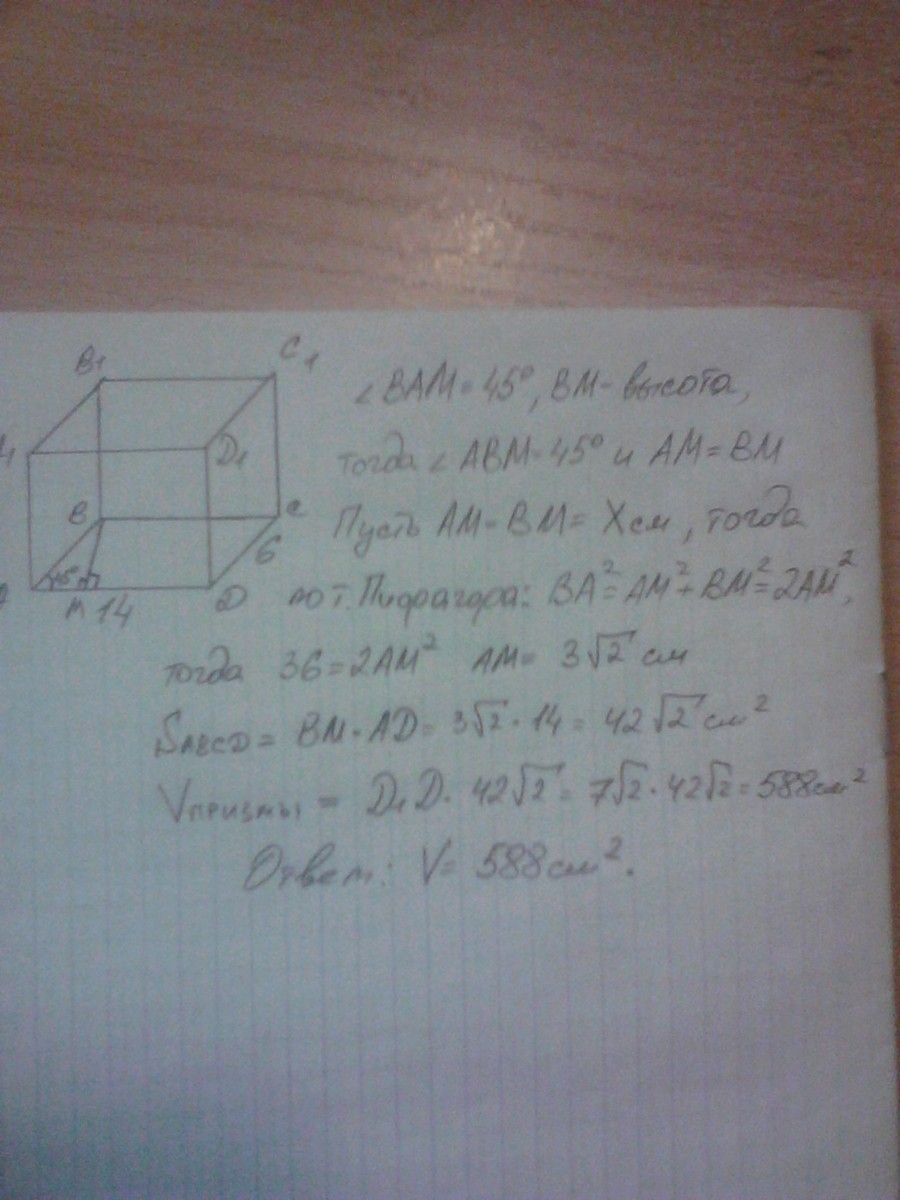 B₁
C₁
D₁
B
C
6
45°
M 14
D
∠BAM = 45°, BM - высота,
тогда ∠ABM = 45° и AM = BM
Пусть AM = BM = X см, тогда
по т. Пифагора: BA² = AM² + BM² = 2AM²,
тогда 36 = 2AM² AM = 3√2 см
S ABCD = BM · AD = 3√2 · 14 = 42√2 см²
V призмы = D₁D · 42√2 = 7√2 · 42√2 = 588 см²
Ответ: V = 588 см².